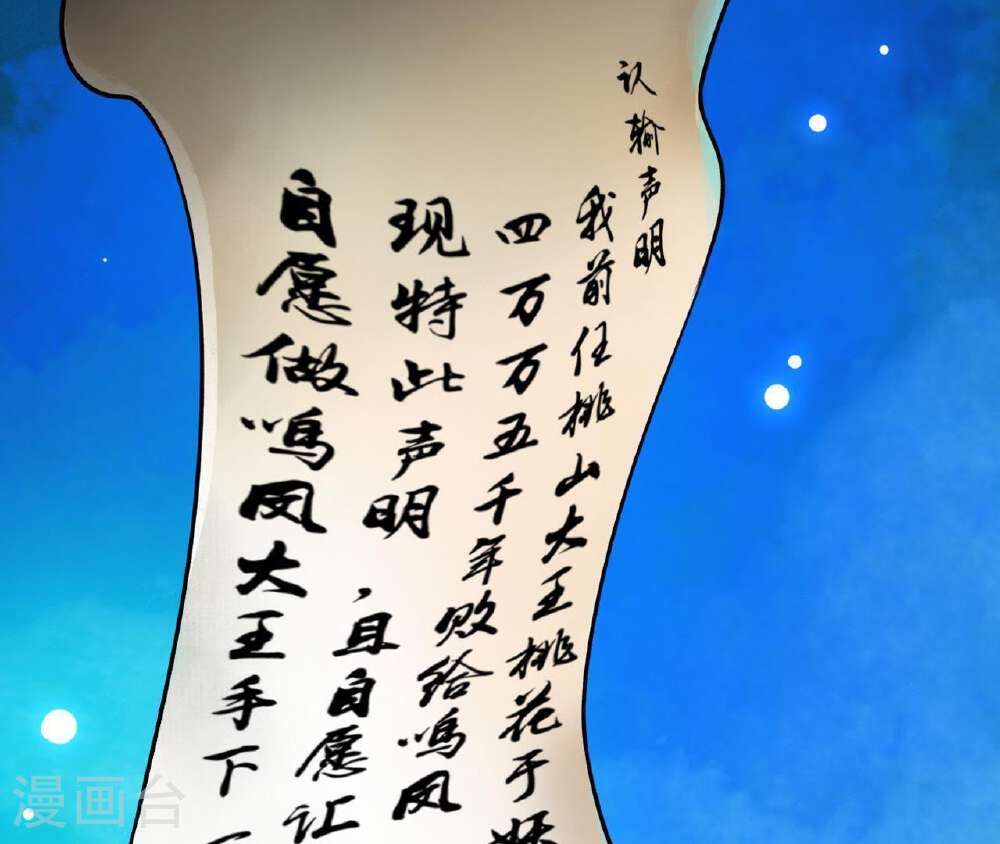 认输声明
我前任桃山大王桃花于妖
四万万五千年败给鸣凤
现特此声明，且自愿让
自愿做鸣凤大王手下一
漫画台